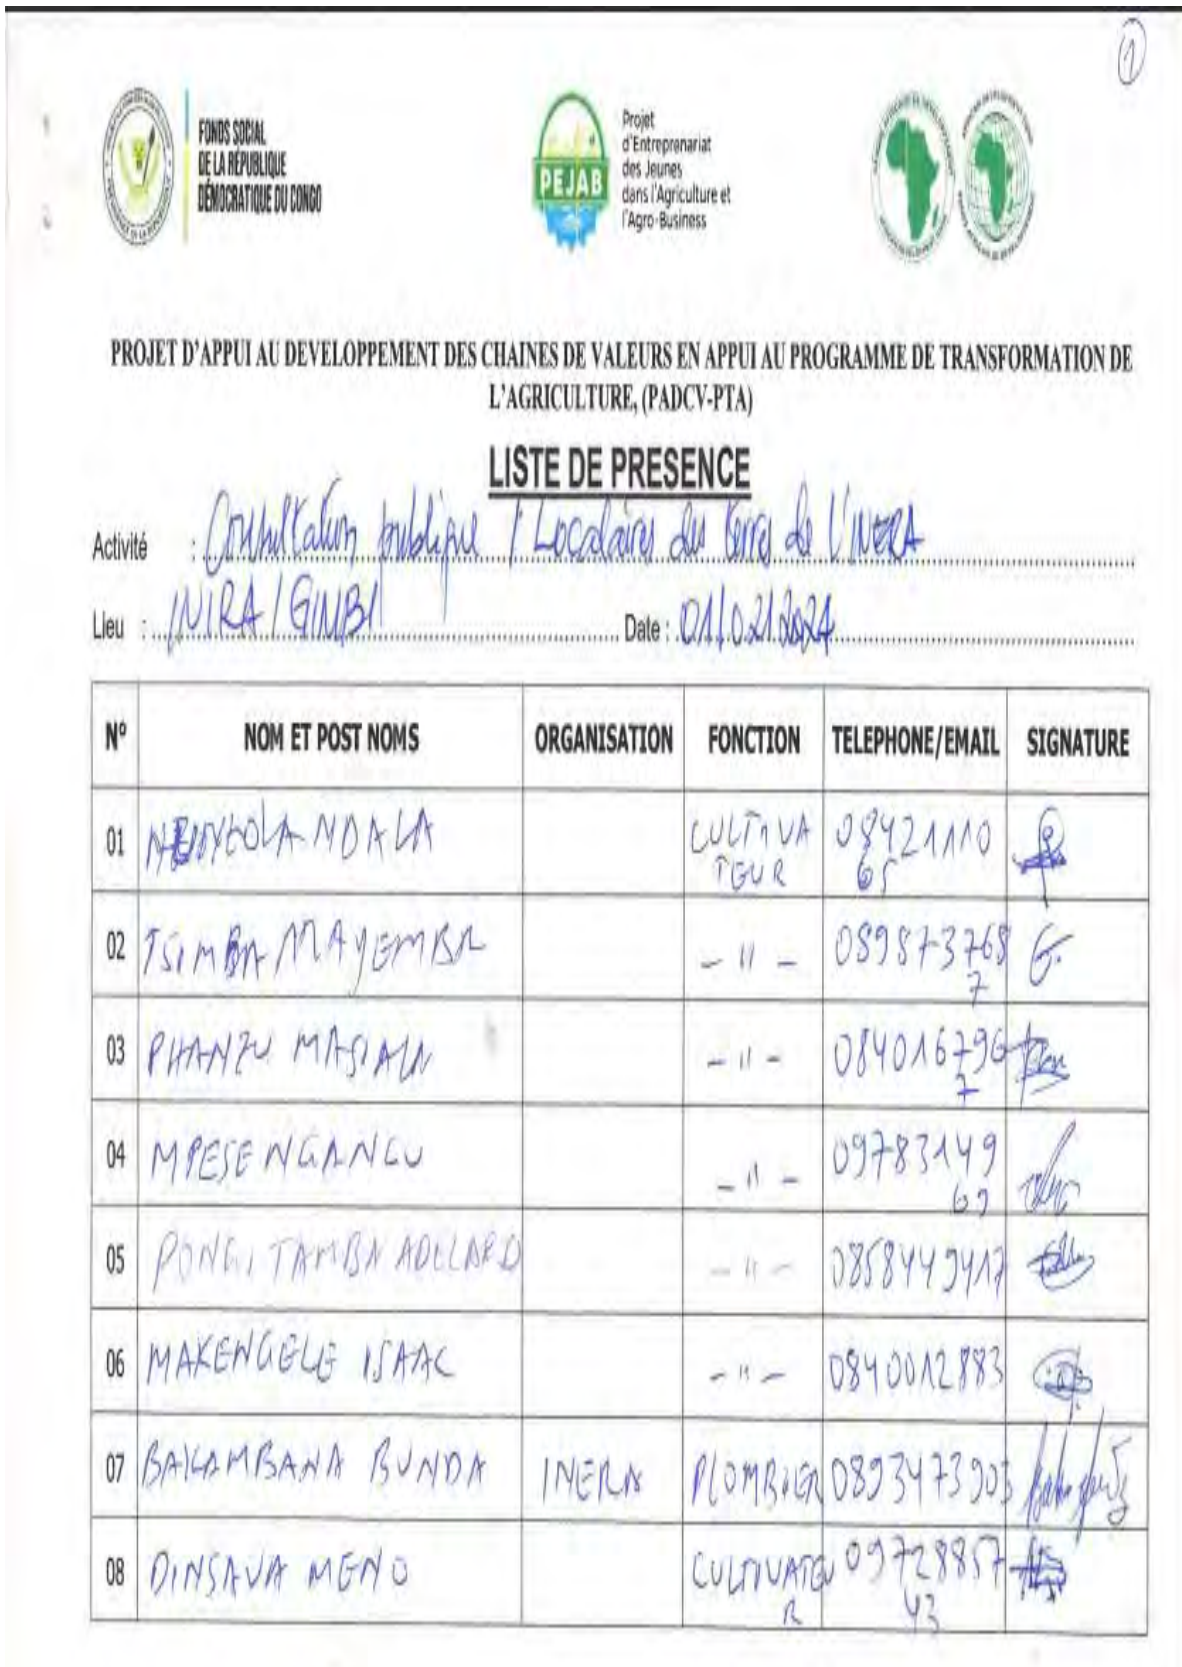 1
FONDS SOCIAL
DE LA RÉPUBLIQUE
DÉMOCRATIQUE DU CONGO
PEJAB
Projet
d'Entreprenariat
des Jeunes
dans l'Agriculture et
l'Agro-Business
PROJET D'APPUI AU DEVELOPPEMENT DES CHAINES DE VALEURS EN APPUI AU PROGRAMME DE TRANSFORMATION DE
L'AGRICULTURE, (PADCV-PTA)
LISTE DE PRESENCE
Activité : Consultation publique / Locataires des terres de L'INERA
Lieu : INIRA / GIMBI Date : 01/02/2021
Nº NOM ET POST NOMS ORGANISATION FONCTION TELEPHONE/EMAIL SIGNATURE
01 NDALA CULTIVA 08421110
TEUR 65
02 TSIMBA MAYEMBA - " - 089873768
7
03 PHANZU - " - 084016796
7
04 MPESE NGANGU - " - 09783149
69
05 PONGI TAMBA ADELARD - " - 0858449417
06 MAKENGELE ISAAC - " - 0840012883
07 BAKAMBANA BUNDA INERA PLOMBIER 0893473903
08 DINSAVA MENO CULTIVATEU 09728857
R 43